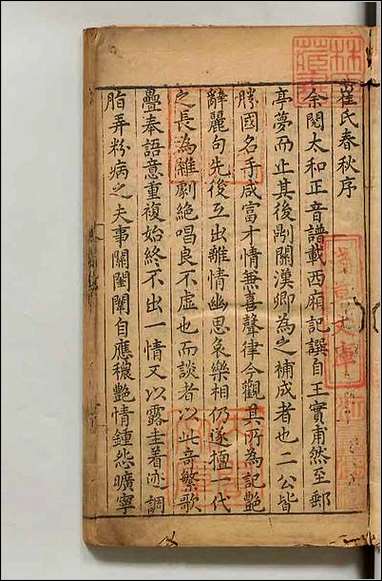 崔氏春秋序
余閱太和正音譜載西廂記譔自王實甫然至郵
亭夢而止其後則關漢卿為之補成者也二公皆
勝國名手咸富才情兼喜聲律今觀其所為記艷
辭麗句先後互出離情幽思哀樂相仍遂擅一代
之長為雜劇絕唱良不虛也而談者以此奇繁歌
疊奉語意重複始終不出一情又以露圭著迹調
脂弄粉病之夫事關閨闈自應穠艷情鍾怨曠寧